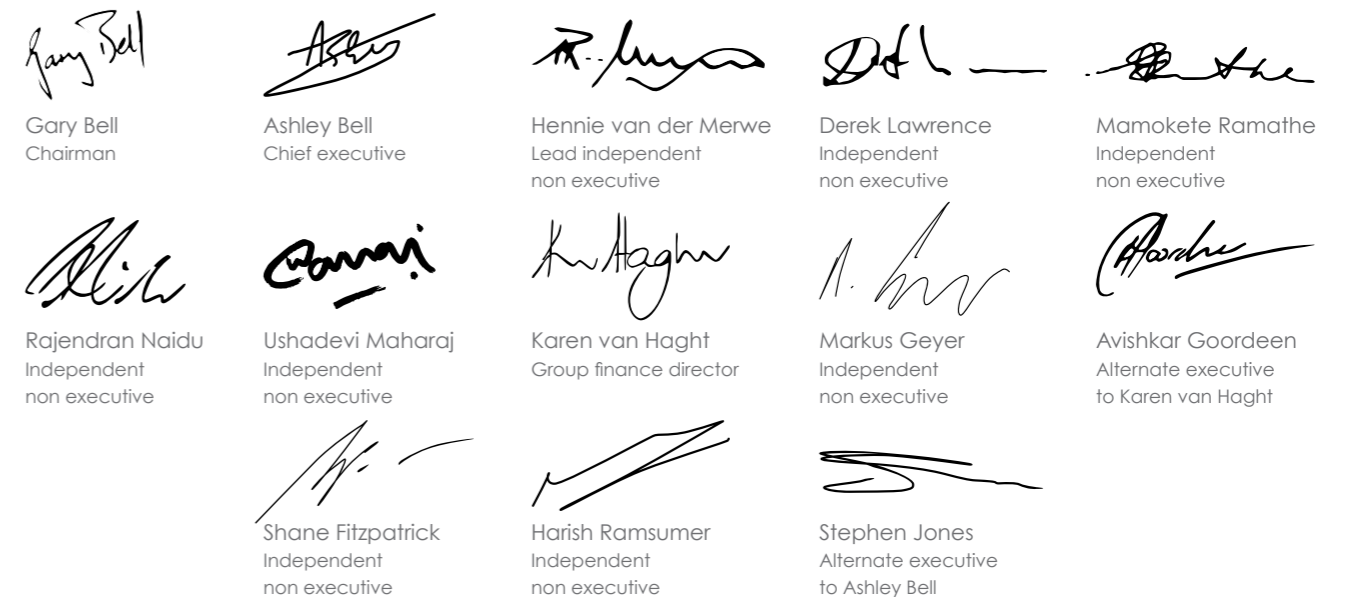 Gary Bell
Gary Bell
Chairman
Ashley Bell
Chief executive
Hennie van der Merwe
Lead independent
non executive
Derek Lawrence
Independent
non executive
Mamokete Ramathe
Independent
non executive
Rajendran Naidu
Independent
non executive
Ushadevi Maharaj
Independent
non executive
Karen van Haght
Group finance director
Markus Geyer
Independent
non executive
Avishkar Goordeen
Alternate executive
to Karen van Haght
Shane Fitzpatrick
Independent
non executive
Harish Ramsumer
Independent
non executive
Stephen Jones
Alternate executive
to Ashley Bell